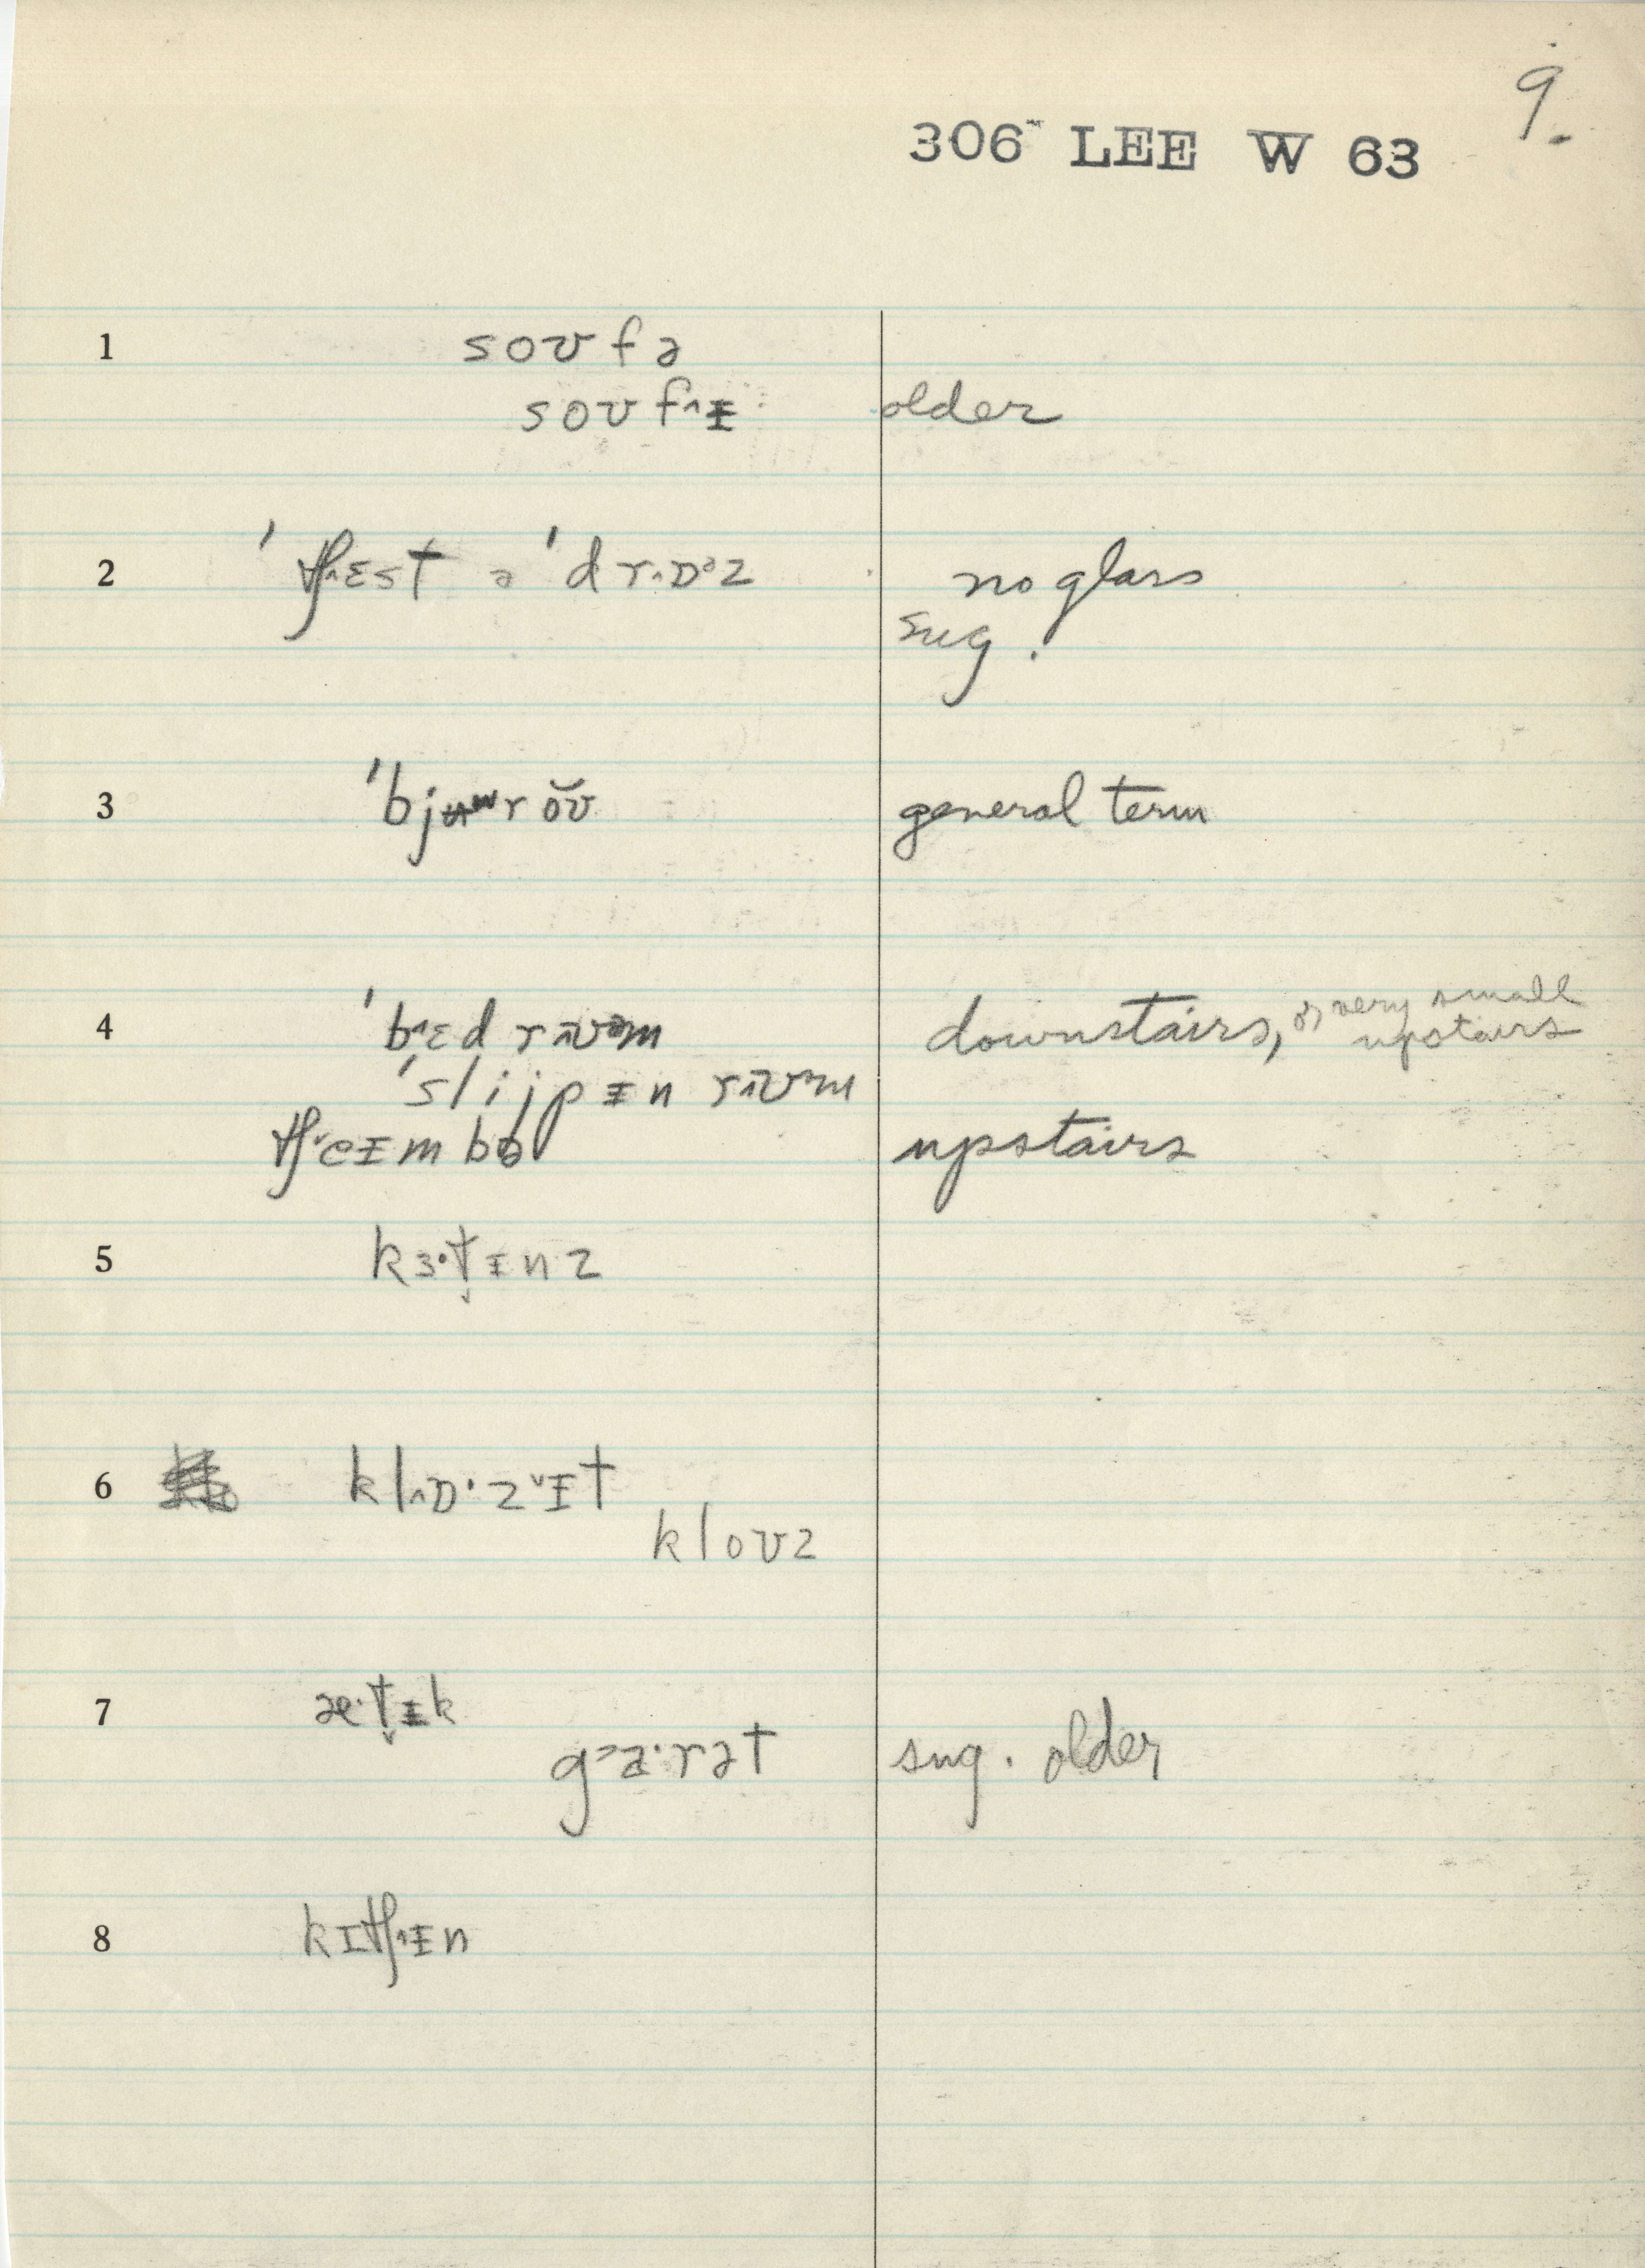 9.
306 LEE W 63
1 soʊfə
soʊf^ɨ older
2 ˈtʃ^ɛst ə ˈdr^ɒᵊz no glass
sug.
3 ˈbjʉʷroʊ̆ general term
4 ˈb^ɛd r^ʊ̄ᵊm downstairs, or very small upstairs
ˈslijpɨn r^ʊ̄ᵊm
tʃ˅eɪmbɚ upstairs
5 kɜ·t̬ɨnz
6 kl^ɒ·z˅ɨt
kloʊz
7 æ·t̬ɨk
g˃a·rət sug. older
8 kɪtʃ^ɨn